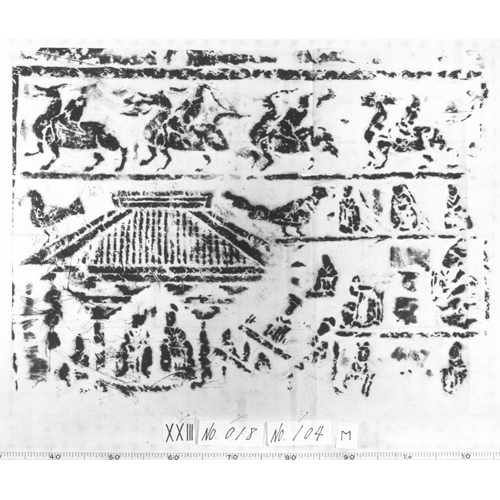 XXIII No. 018 No. 104 M
40 50 60 70 80 90 10